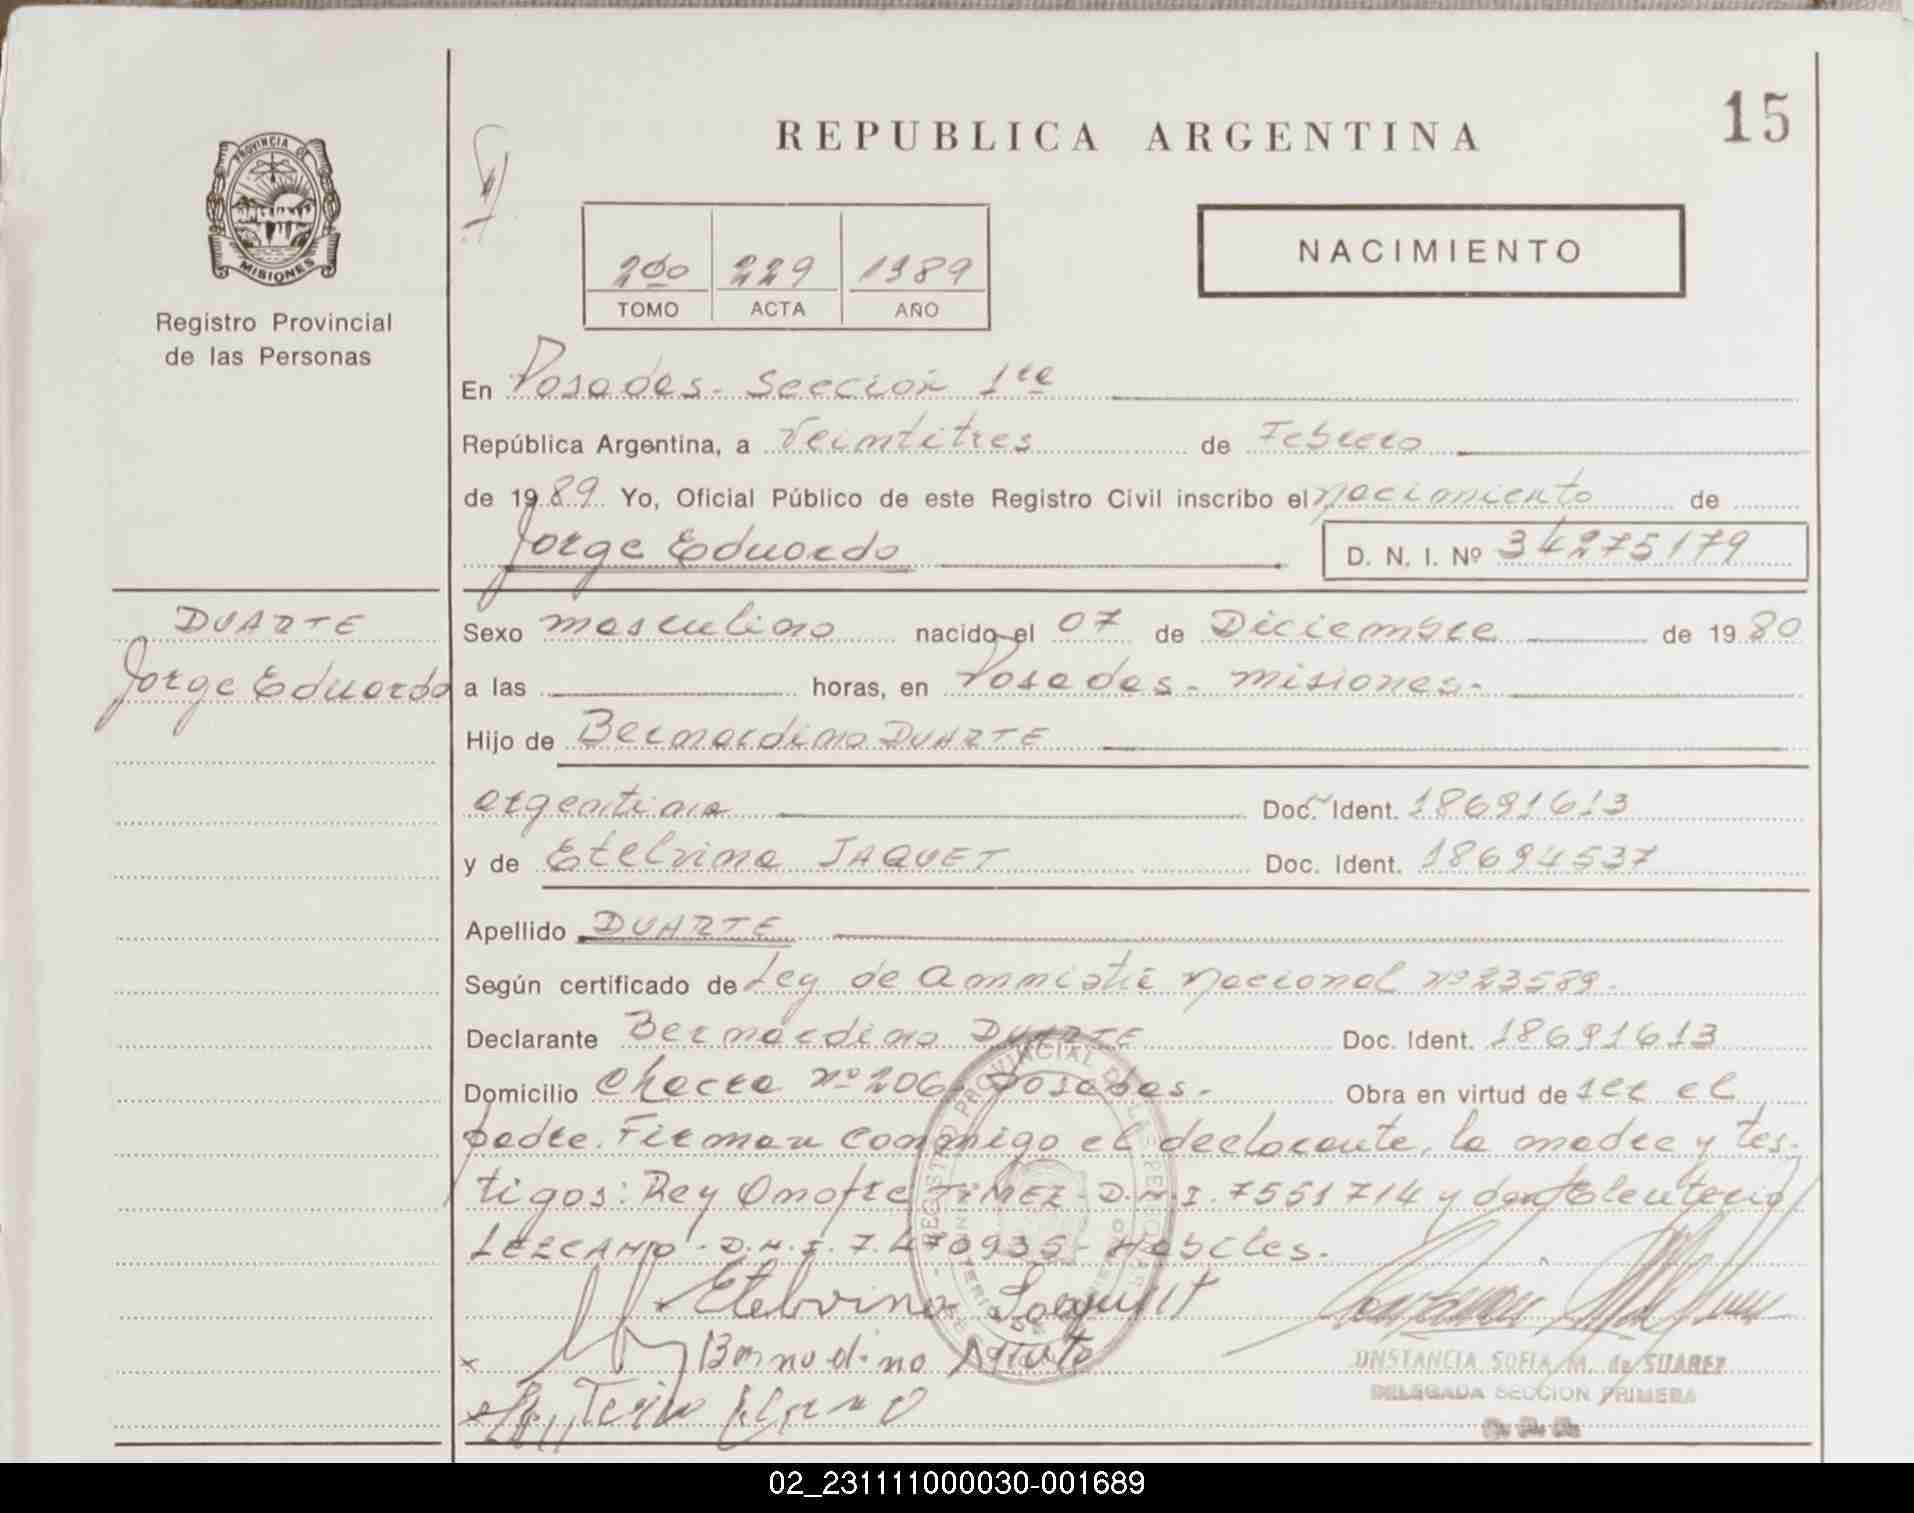 15
REPUBLICA ARGENTINA
PROVINCIA DE
MISIONES
Registro Provincial
de las Personas
2do 229 1989
TOMO ACTA AÑO
NACIMIENTO
En Posadas - Sección 1ra
República Argentina, a Veintitres de Febrero
de 1989 Yo, Oficial Público de este Registro Civil inscribo el nacimiento de
Jorge Eduardo D. N. I. Nº 34275179
DUARTE
Jorge Eduardo
Sexo masculino nacido el 07 de Diciembre de 1980
a las horas, en Posadas - misiones -
Hijo de Bernardino DUARTE
argentino Doc. Ident. 18691613
y de Etelvina JAQUET Doc. Ident. 18694537
Apellido DUARTE
Según certificado de Ley de Amnistia Nacional nº 23589.
Declarante Bernardino DUARTE Doc. Ident. 18691613
Domicilio Chacra nº 206 Posadas - Obra en virtud de ser el
padre. Firman conmigo el declarante, la madre y tes-
tigos: Rey Onofre D.N.I. 7551714 y don Eleuterio
LEZCANO - D.N.I. 7.470935 - Habiles.
Etelvina Jaquet
Bernardino Duarte
CONSTANCIA SOFIA M. de SUAREZ
DELEGADA SECCION PRIMERA
02_231111000030-001689